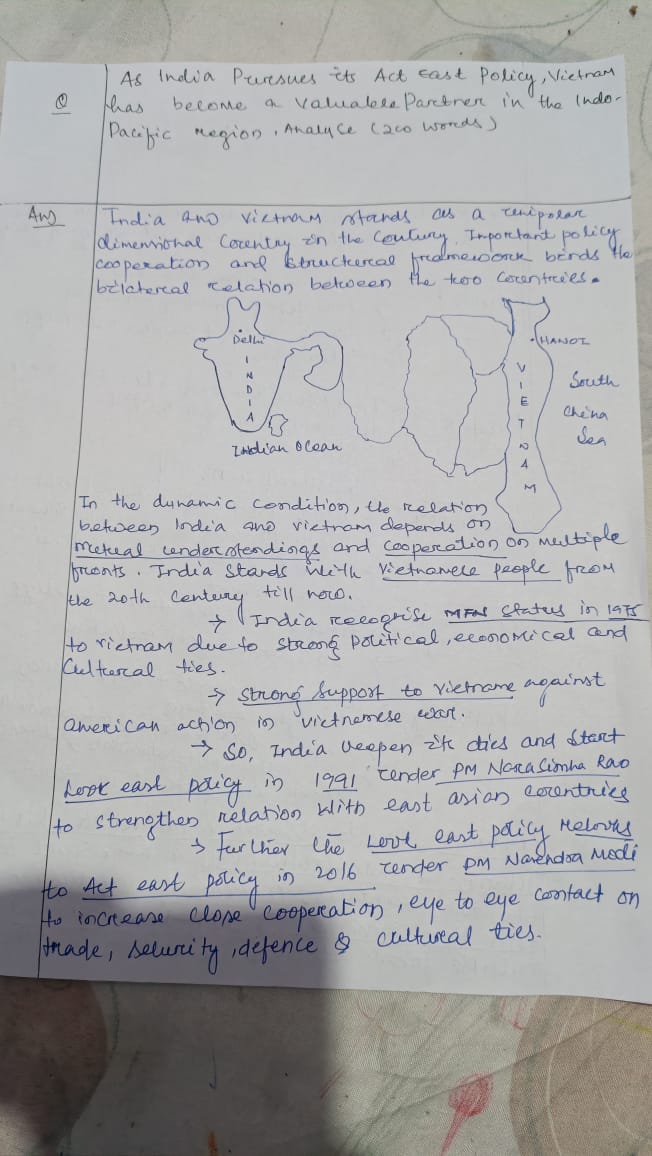 Q
As India Pursues its Act East Policy, Vietnam
has become a valuable Partner in the Indo-
Pacific region, Analyse (200 words)
Ans
India and Vietnam stands as a
dimensional Country in the Century. Important policy
cooperation and structural framework binds the
bilateral relation between the two countries.
Delhi
INDIA
Indian Ocean
HANOI
VIETNAM
South
China
Sea
In the dynamic condition, the relation
between India and Vietnam depends on
mutual understandings and cooperation on multiple
fronts. India stands with Vietnamese people from
the 20th century till now.
→ India recognise MFN status in 1975
to Vietnam due to strong political, economical and
Cultural ties.
→ Strong Support to Vietname against
American action in Vietnamese war.
→ So, India deepen it's ties and start
Look east policy in 1991 under PM Narasimha Rao
to strengthen relation with east asian countries
→ Further the Look east policy
to Act east policy in 2016 under PM Narendra Modi
to increase close cooperation, eye to eye contact on
trade, security, defence & cultural ties.